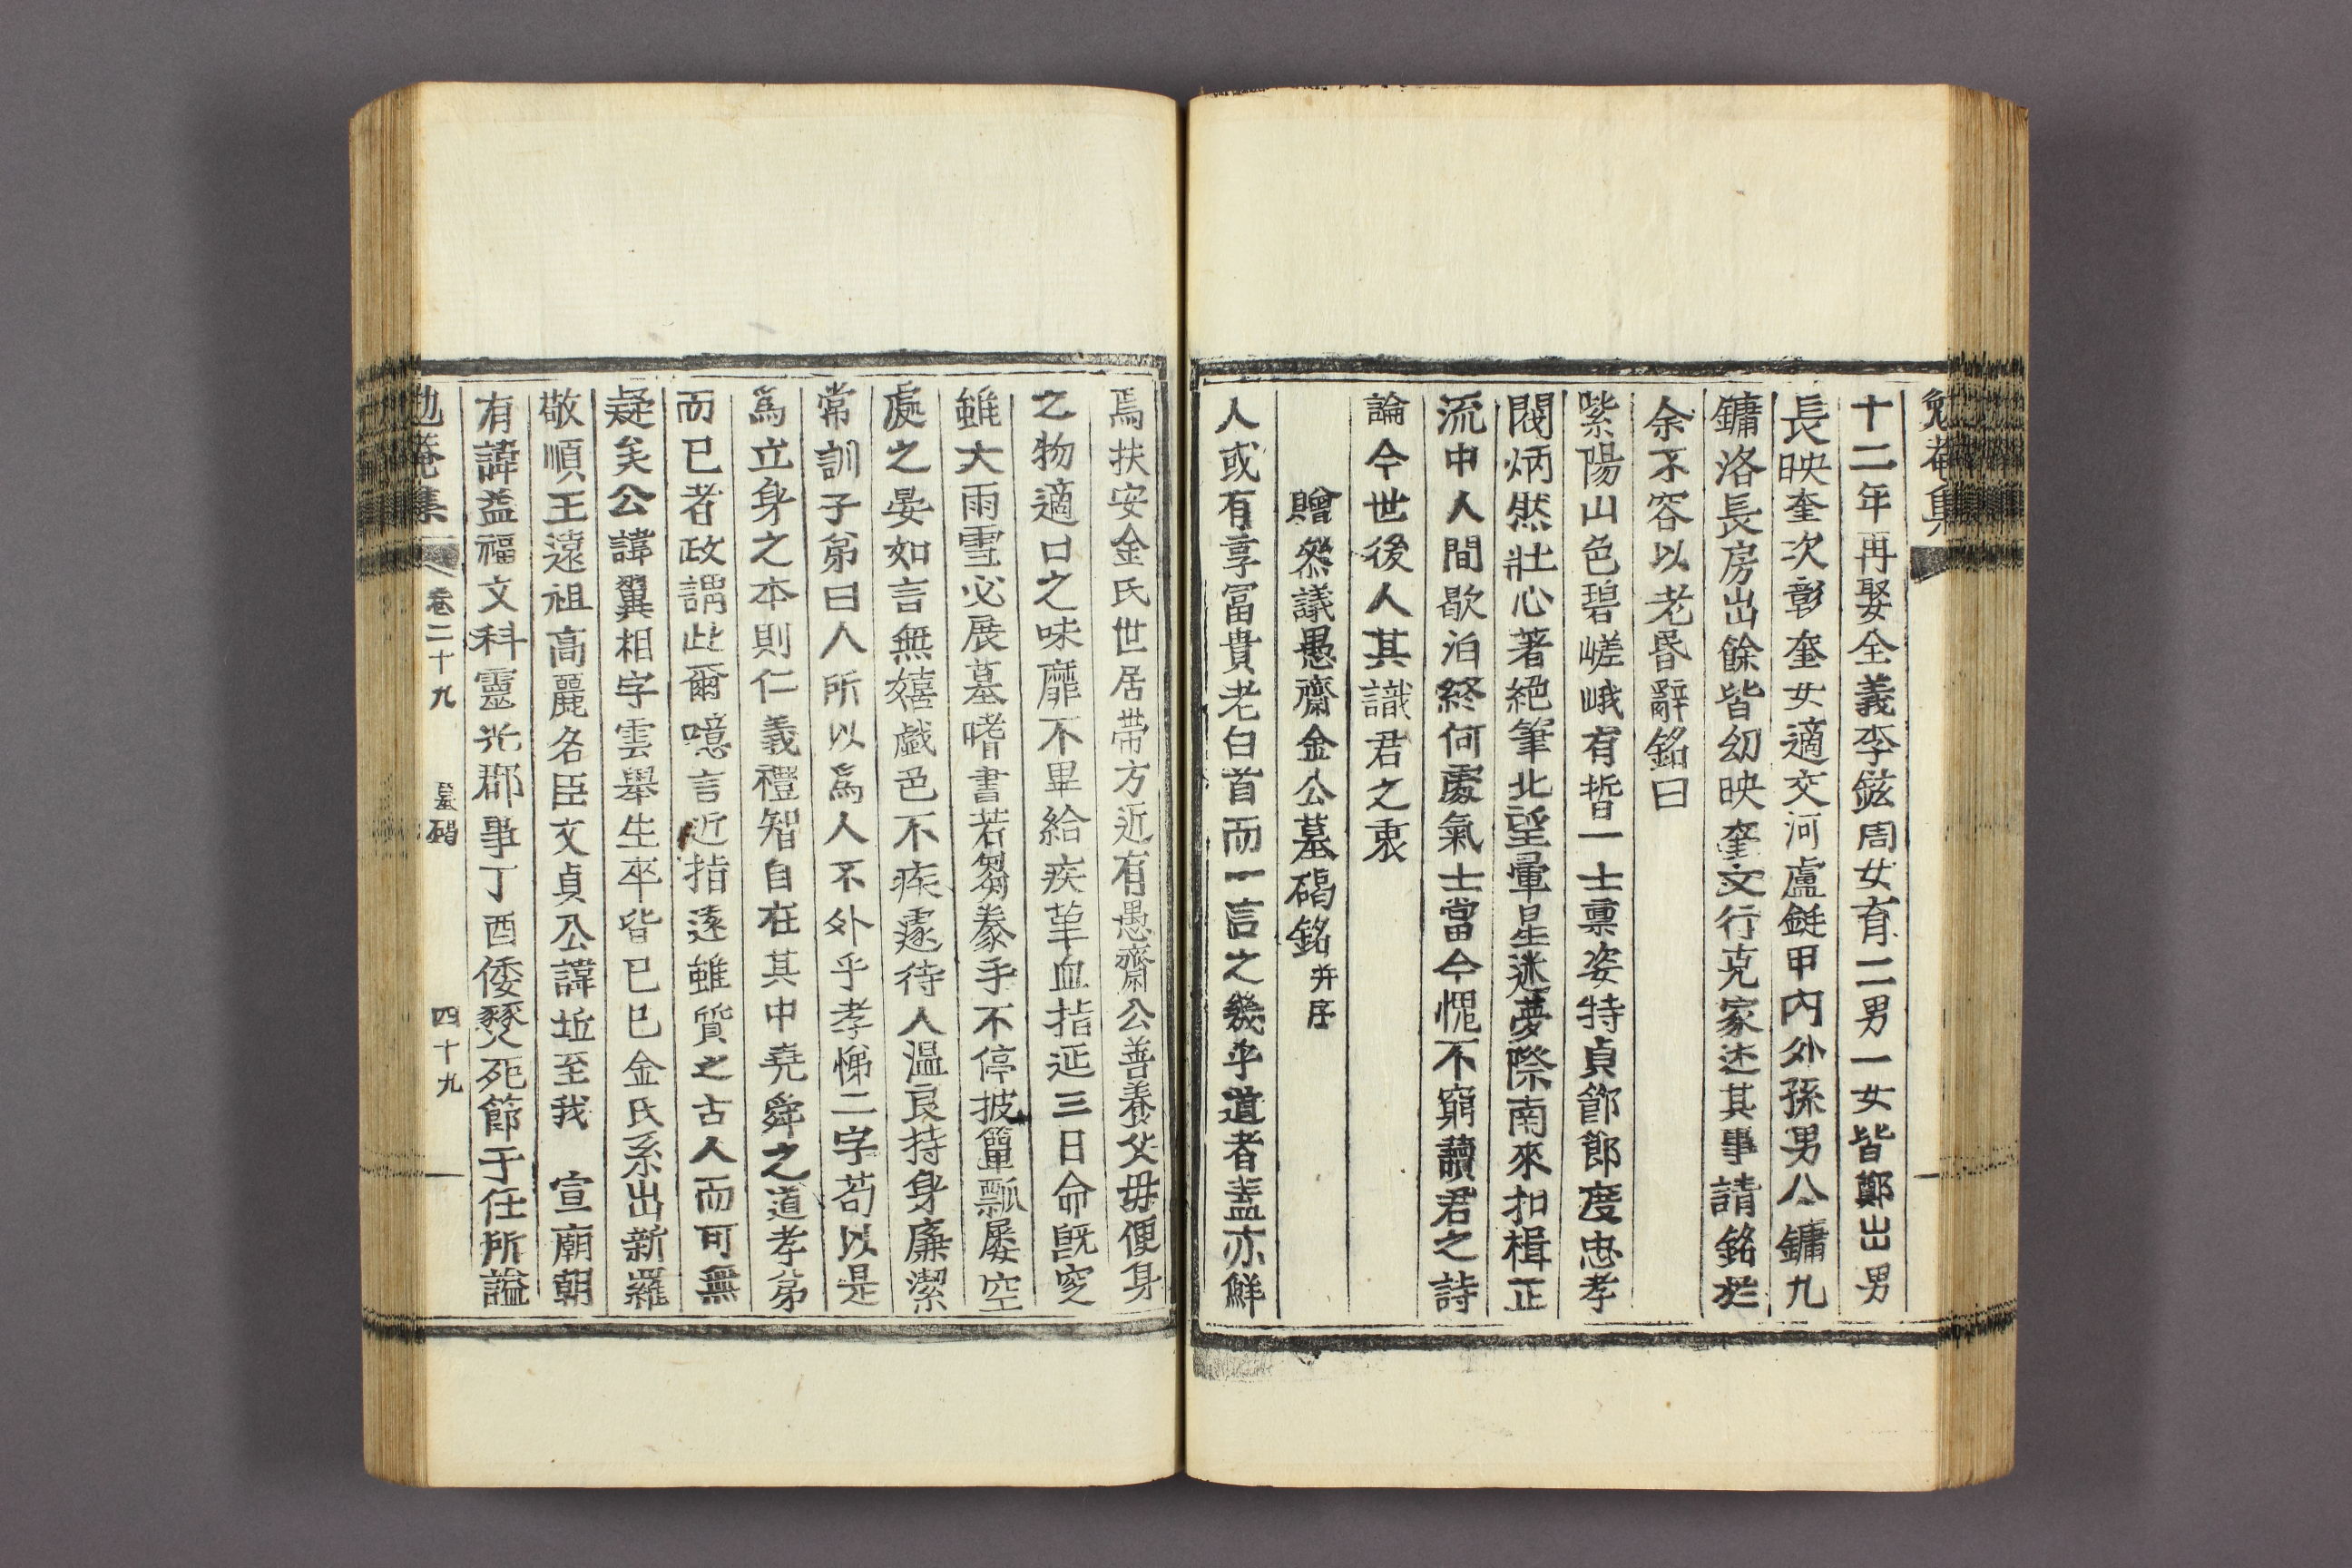 勉菴集
十二年再娶全義李鉉周女育二男一女皆鄭出男
長映奎次彰奎女適交河盧鋌甲內外孫男八鏞九
鏞洛長房出餘皆幼映奎文行克家述其事請銘於
余不容以老昏辭銘曰
紫陽山色碧嵯峨有晢一士禀姿特貞節節度忠孝
閥炳然壯心著絕筆北望暈星迷夢際南來扣楫正
流中人間歇泊終何處氣士當今愧不窮讀君之詩
論今世後人其識君之衷
贈叅議愚齋金公墓碣銘 并序
人或有享富貴老白首而一言之幾乎道者盖亦鮮
焉扶安金氏世居帶方近有愚齋公善養父母便身
之物適口之味靡不畢給疾革血指延三日命旣窆
雖大雨雪必展墓嗜書若芻豢手不停披簞瓢屢空
處之晏如言無嬉戲色不疾遽待人溫良持身廉潔
常訓子弟曰人所以爲人不外乎孝悌二字苟以是
爲立身之本則仁義禮智自在其中堯舜之道孝弟
而已者政謂此爾噫言近指遠雖質之古人而可無
疑矣公諱翼相字雲擧生卒皆己巳金氏系出新羅
敬順王遠祖高麗名臣文貞公諱坵至我 宣廟朝
有諱益福文科靈光郡事丁酉倭燹死節于任所謚
勉菴集 卷二十九 墓碣 四十九